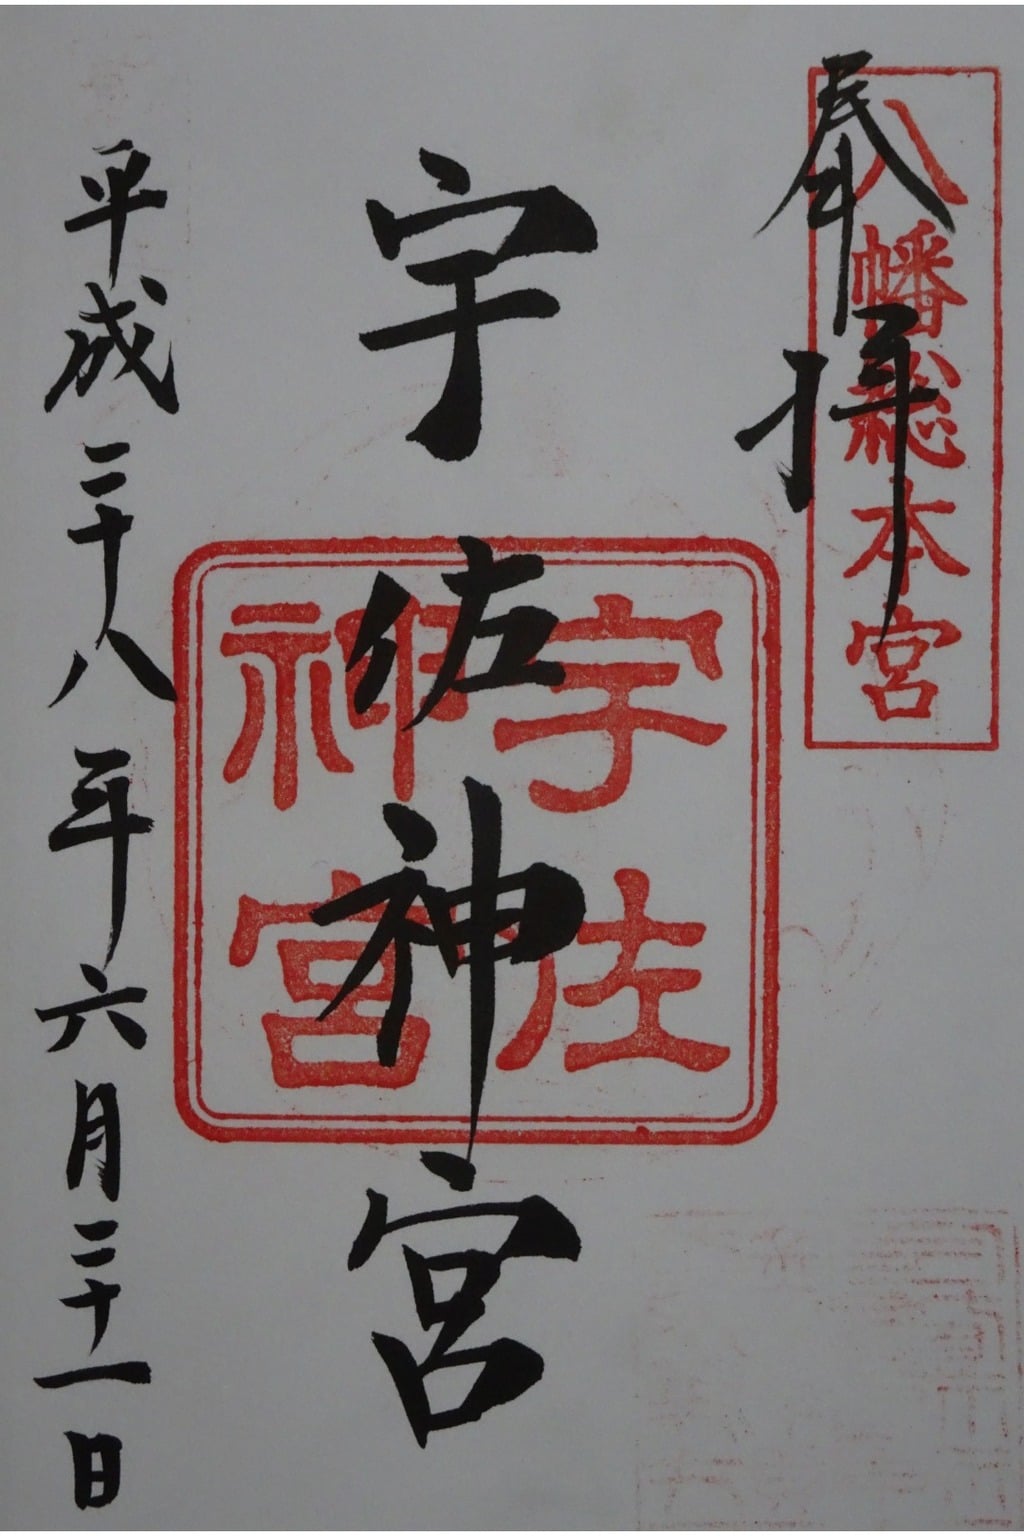 奉拝
八幡総本宮
宇佐神宮
宇佐
神宮
平成二十八年六月二十一日